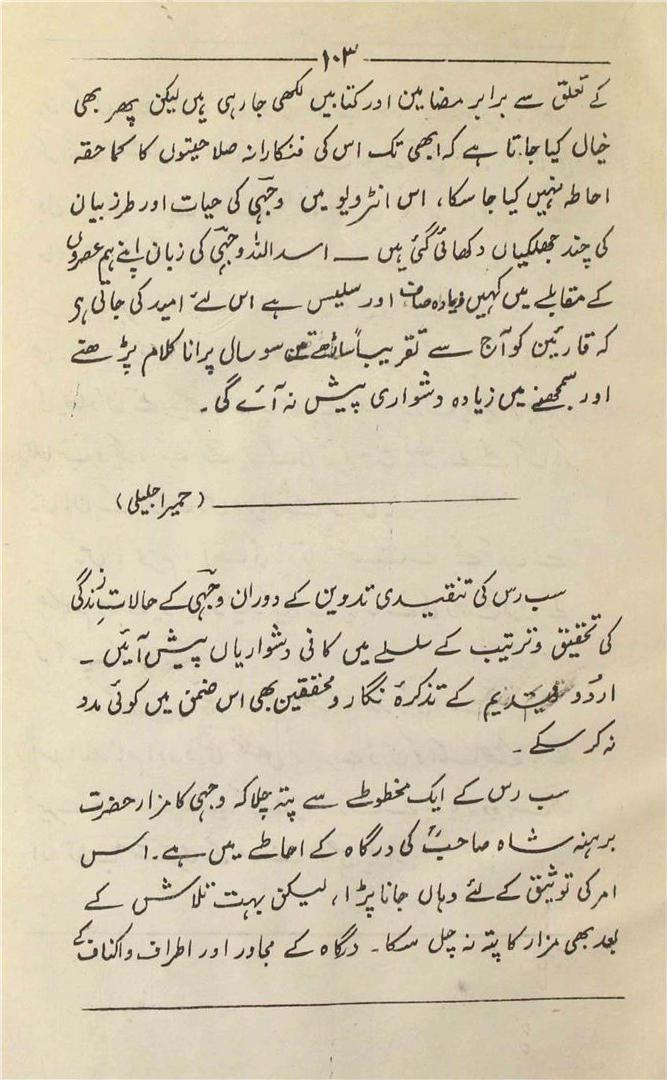 ۱۰۳
کے تعلق سے برابر مضامین اور کتابیں لکھی جا رہی ہیں لیکن پھر بھی
خیال کیا جاتا ہے کہ ابھی تک اس کی فنکارانہ صلاحیتوں کا کماحقہ
احاطہ نہیں کیا جا سکا، اس انٹرویو میں وجہیؔ کی حیات اور طرز بیان
کی چند جھلکیاں دکھائی گئی ہیں ــ اسد اللہ وجہیؔ کی زبان اپنے ہم عصروں
کے مقابلے میں کہیں زیادہ صاف اور سلیس ہے اس لئے امید کی جاتی ہی
کہ قارئین کو آج سے تقریباً ساڑھے تین سو سال پرانا کلام پڑھنے
اور سمجھنے میں زیادہ دشواری پیش نہ آئے گی۔
(حمیرا جلیلی)
سب رس کی تنقیدی تدوین کے دوران وجہیؔ کے حالات زندگی
کی تحقیق و ترتیب کے سلسلے میں کافی دشواریاں پیش آئیں ۔
اردو قدیم کے تذکرہ نگار و محققین بھی اس ضمن میں کوئی مدد
نہ کر سکے ۔
سب رس کے ایک مخطوطے سے پتہ چلا کہ وجہی کا مزار حضرت
برہنہ شاہ صاحبؒ کی درگاہ کے احاطے میں ہے۔ اس
امر کی توثیق کے لئے وہاں جانا پڑا، لیکن بہت تلاش کے
بعد بھی مزار کا پتہ نہ چل سکا۔ درگاہ کے مجاور اور اطراف و اکناف کے